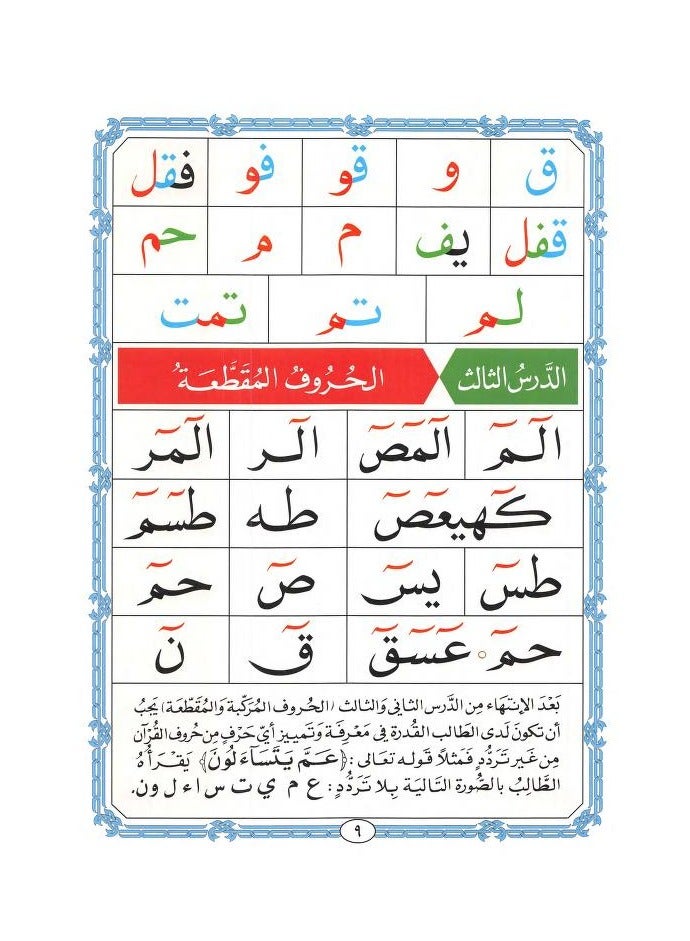 ق و قو فو فقل
قفل يف م م حم
لم تم تمت
الدَّرسُ الثالث الحُرُوفُ المُقَطَّعَةُ
الٓمٓ الٓمٓصٓ الٓر الٓمٓر
كٓهيعٓصٓ طه طسٓمٓ
طسٓ يسٓ صٓ حمٓ
حمٓ ۝ عٓسٓقٓ قٓ نٓ
بَعْدَ الإنتهَاء مِن الدَّرس الثاني والثالث (الحُروف المُرَكّبة وَالمُقَطّعَة) يَجبُ
أن تكونَ لَدى الطالب القُدرة في مَعْرفَة وَتَمييز أيّ حَرْفٍ مِن حُروف القُرآن
مِن غَير تَرَدُّدٍ فَمثلاً قَوله تعَالى : ﴿عَمَّ يَتَسَآءَلُونَ﴾ يَقْرَأُهُ
الطَّالِبُ بالصُّورة التاليَة بِلا تَرَدُّدٍ: ع م ي ت س ا ء ل و ن.
٩